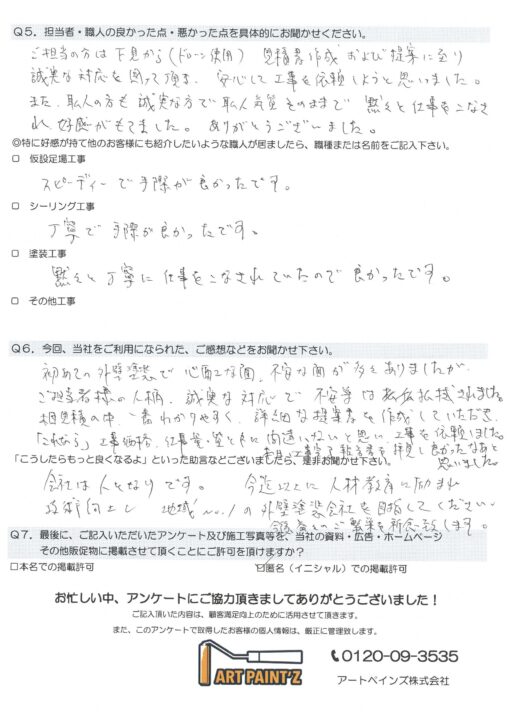 Q5. 担当者・職人の良かった点・悪かった点を具体的にお聞かせください。
ご担当の方は下見から(ドローン使用) 見積書作成および提案に至り
誠実な対応を図って頂き、安心して工事を依頼しようと思いました。
また、職人の方も誠実な方で職人気質そのままで 黙々と仕事をこなさ
れ、好感がもてました。ありがとうございました。
◎特に好感が持て他のお客様にも紹介したいような職人が居ましたら、職種または名前をご記入下さい。
□ 仮設足場工事
スピーディーで手際が良かったです。
□ シーリング工事
丁寧で手際が良かったです。
□ 塗装工事
黙々と丁寧に仕事をこなされていたので良かったです。
□ その他工事
Q6. 今回、当社をご利用になられた、ご感想などをお聞かせ下さい。
初めての外壁塗装で心配な面、不安な面が多々ありましたが、
ご担当者様の人柄、誠実な対応で不安等は払拭されました。
相見積の中一番わかりやすく、詳細な提案書を作成していただき、
工事価格、仕事量・質ともに間違いないと思い、工事を依頼しました。
工事完了報告書を拝見し良かったなあと
思いました。
「こうしたらもっと良くなるよ」といった助言などございましたら、是非お聞かせ下さい。
会社は人となりです。今迄以上に人材教育に励まれ
技術向上し 地域No.1の外壁塗装会社を目指してください。
ご繁栄を祈念致します。
Q7. 最後に、ご記入いただいたアンケート及び施工写真等を、当社の資料・広告・ホームページ
その他販促物に掲載させて頂くことにご許可を頂けますか?
□本名での掲載許可
☑匿名(イニシャル)での掲載許可
お忙しい中、アンケートにご協力頂きましてありがとうございました!
ご記入頂いた内容は、顧客満足向上のために活用させて頂きます。
また、このアンケートで取得したお客様の個人情報は、厳正に管理致します。
ART PAINT'Z
0120-09-3535
アートペインズ株式会社